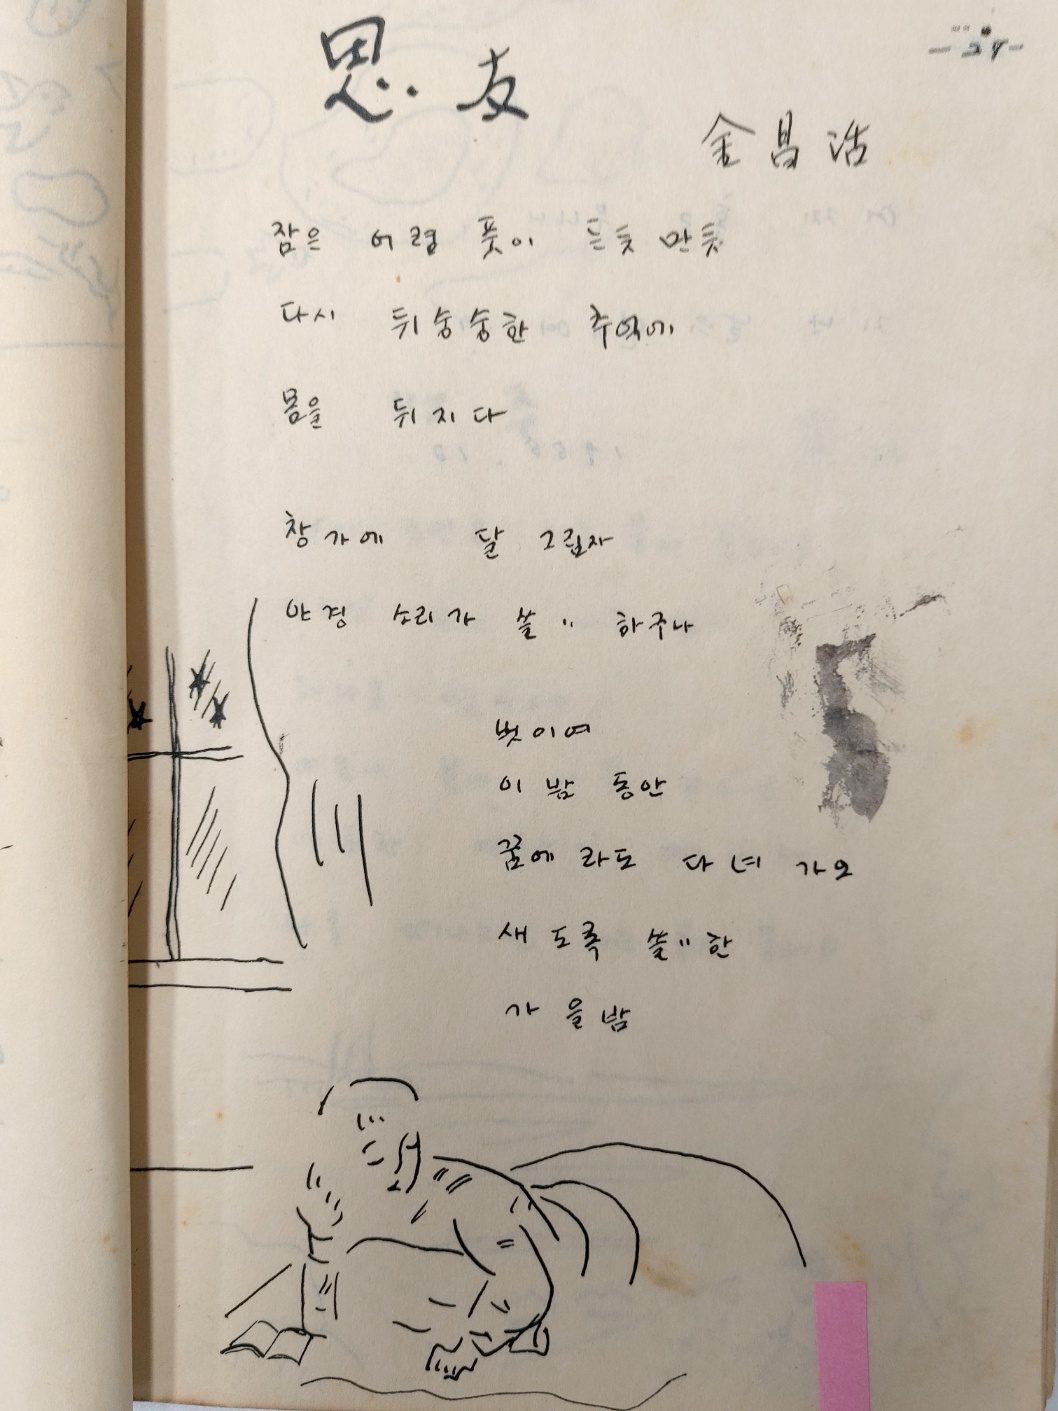 -24-
思友
金昌浩
잠은 어렴풋이 든듯 만듯
다시 뒤숭숭한 추억에
몸을 뒤지다
창가에 달 그림자
야경 소리가 쓸〃 하구나
벗이여
이 밤 동안
꿈에라도 다녀 가오
새도록 쓸〃한
가을밤